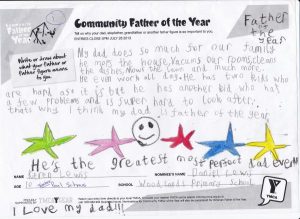 Community Father of the Year
Tell us why your dad, stepfather, grandfather or another father figure is so important to you.
ENTRIES CLOSE 5PM JULY 26 2013
Father
of the
Year
Write or draw about
what your Father or
Father figure means
to you.
My dad does so much for our family
he mops the house, Vacums our rooms, cleans
the dishes, Mows the lawn and much more.
work all day. He has two kids who
are hard as it is but he has another bid who has
a few problems and is super hard to look after.
thats why I think my dad is father of the year.
He's the greatest most perfect dad ever!!!
NAME Lewis
NOMINEE'S NAME Daniel Lewis
AGE 10
SCHOOL Woodlands Primary School
I Love my dad!!!
YMCA